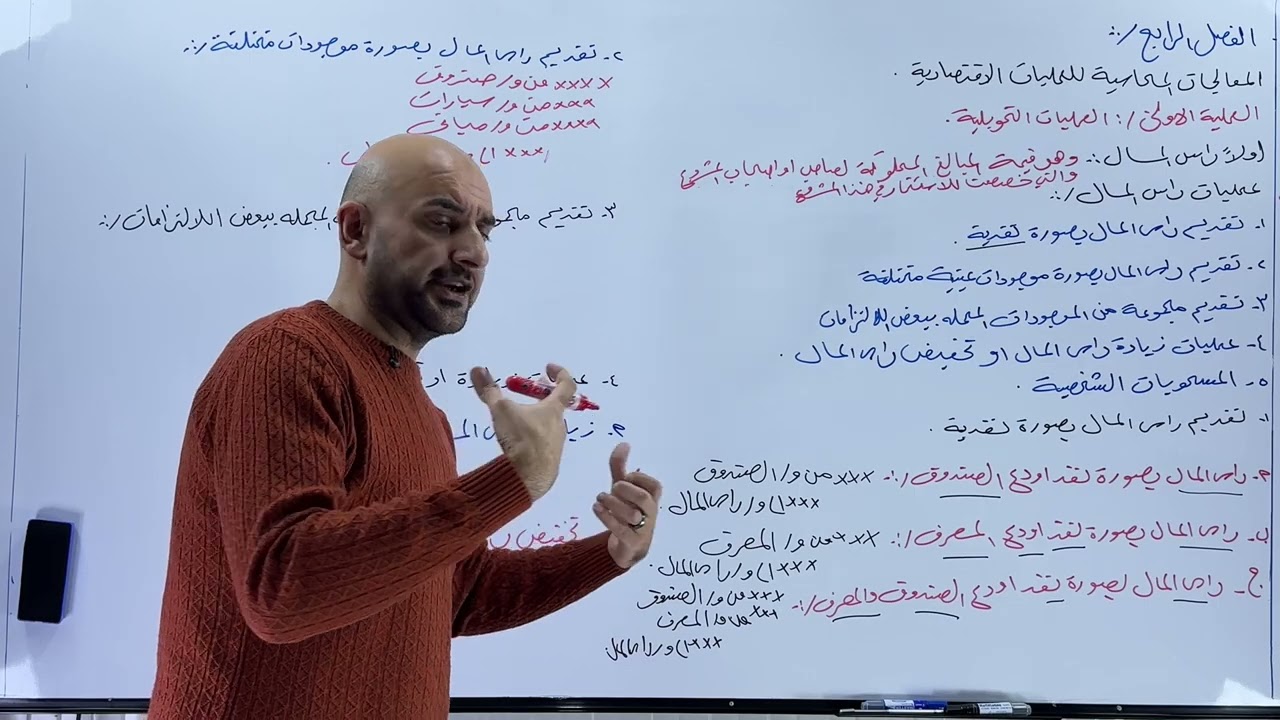 الفصل الرابع /::
المعالجات المحاسبية للعمليات الاقتصادية .
العملية الاولى /: العمليات التمويلية .
اولاً راس المال :. وهو قيمة المبالغ المملوكة لصاحب او اصحاب المشروع
والتي خصصت للاستثمار في هذا المشروع
عمليات راس المال /::
١. تقديم راس المال بصورة نقدية .
٢. تقديم راس المال بصورة موجودات عينية مختلفة
٣. تقديم مجموعة من الموجودات المحمله ببعض الالتزامات
٤- عمليات زيادة راس المال او تخفيض راس المال .
٥. المسحوبات الشخصية .
١. تقديم راس المال بصورة نقدية .
م. راس المال بصورة نقد اودع الصندوق /:. xxx من ح/ الصندوق
xxx الى ح/ راس المال .
ب. راس المال بصورة نقد اودع المصرف /:. xxx من ح/ المصرف
xxx الى ح/ راس المال .
ج. راس المال بصورة نقد اودع الصندوق والمصرف /:. xxx من ح/ الصندوق
xxx من ح/ المصرف
xxx الى ح/ راس المال
٢. تقديم راس المال بصورة موجودات مختلفة /:.
xxxx من ح/ صندوق
xxx من ح/ سيارات
xxxx من ح/ مباني
xxx الى
٣. تقديم المحمله ببعض الالتزامات /:.
٤-
م.
تخفيض